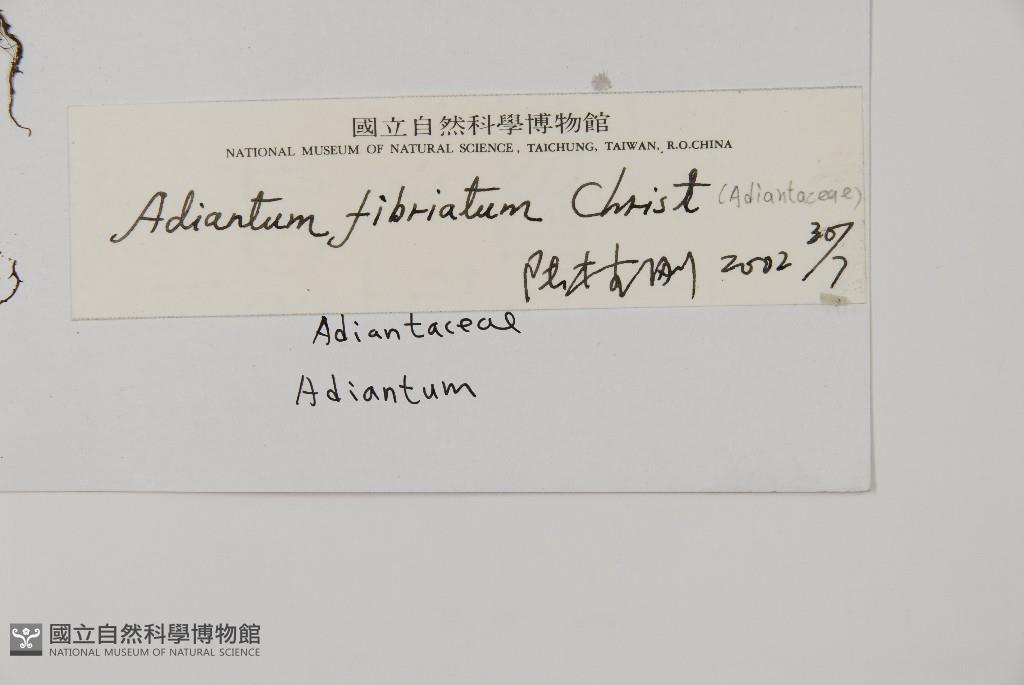 國立自然科學博物館
NATIONAL MUSEUM OF NATURAL SCIENCE, TAICHUNG, TAIWAN, R.O.CHINA
Adiantum fibriatum Christ (Adiantaceae)
2002 30/7
Adiantaceae
Adiantum
國立自然科學博物館
NATIONAL MUSEUM OF NATURAL SCIENCE